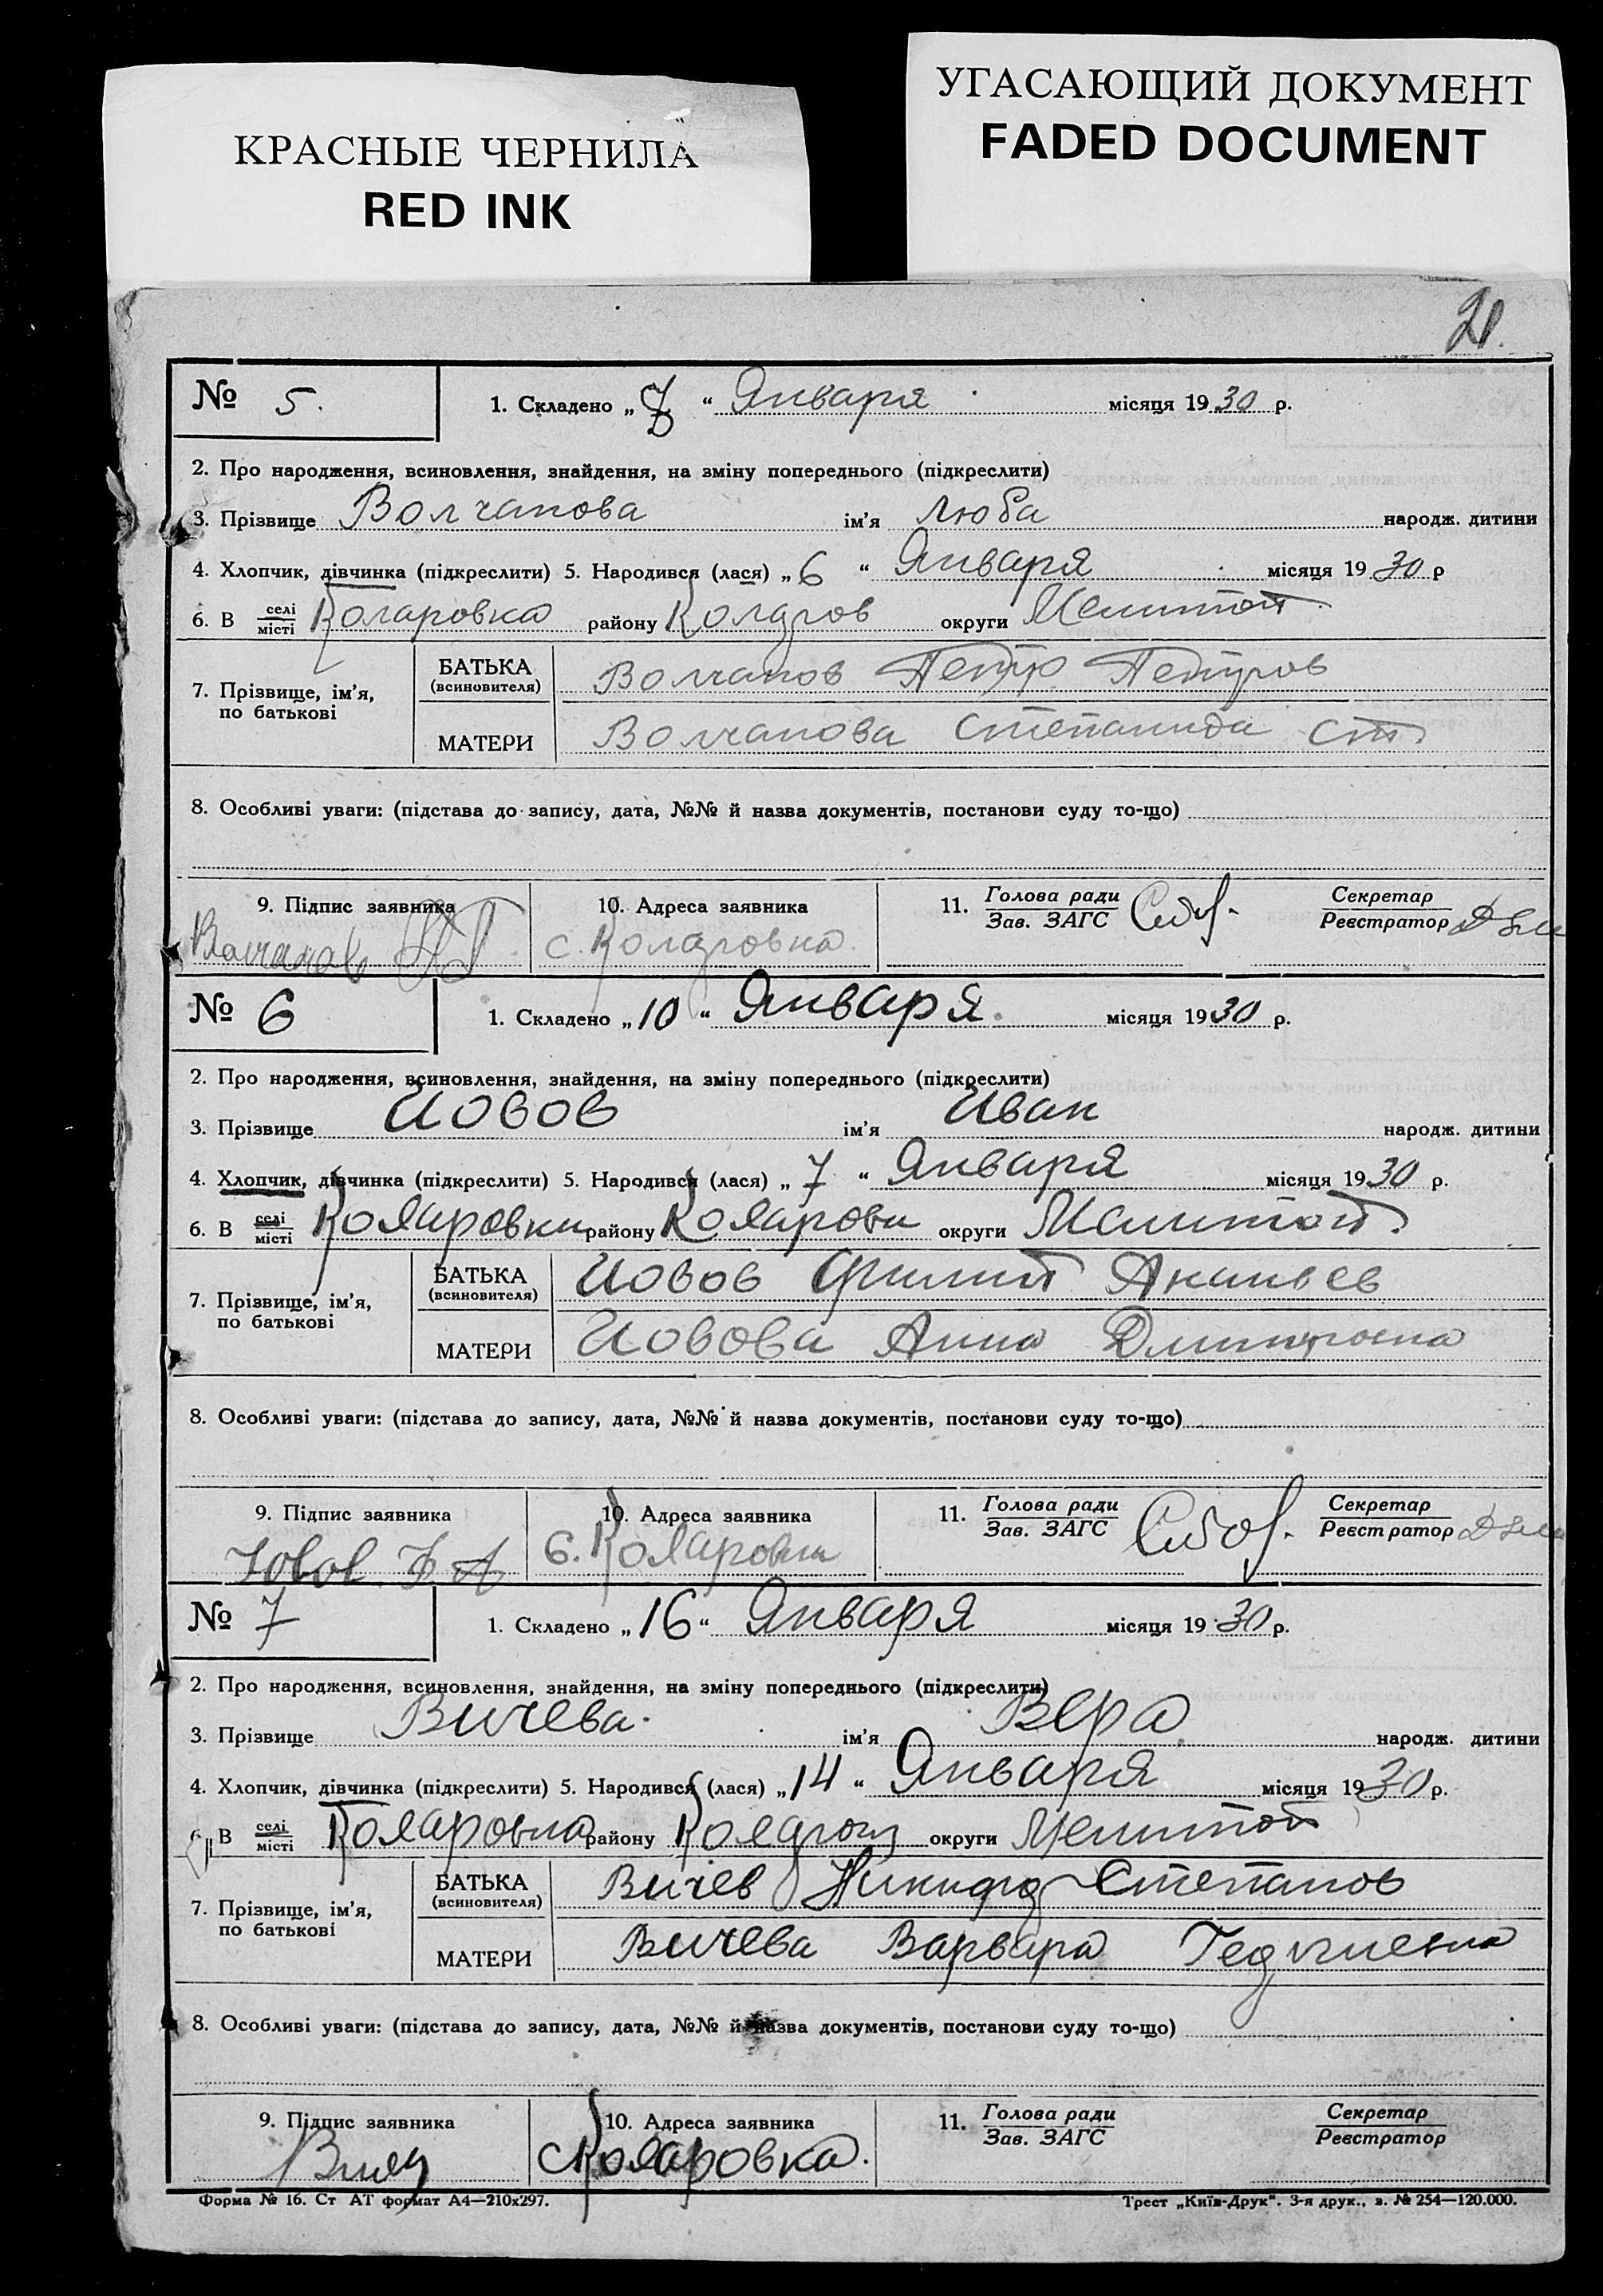 КРАСНЫЕ ЧЕРНИЛА
RED INK
УГАСАЮЩИЙ ДОКУМЕНТ
FADED DOCUMENT
№ 5. 1. Складено „ “ Января місяця 1930 р.
2. Про народження, всиновлення, знайдення, на зміну попереднього (підкреслити)
3. Прізвище Волчанова ім’я Люба народж. дитини
4. Хлопчик, дівчинка (підкреслити) 5. Народився (лася) „6“ Января місяця 1930 р
6. В селі місті Коларовка району Коларов округи Мелитоп
7. Прізвище, ім’я, по батькові БАТЬКА (всиновителя) Волчанов Петр Петров
МАТЕРИ Волчанова Степанида Ст
8. Особливі уваги: (підстава до запису, дата, №№ й назва документів, постанови суду то-що)
9. Підпис заявника 10. Адреса заявника 11. Голова ради Зав. ЗАГС Секретар Реєстратор
Волчанов ПП с. Коларовка
№ 6 1. Складено „10“ Января місяця 1930 р.
2. Про народження, всиновлення, знайдення, на зміну попереднього (підкреслити)
3. Прізвище Иовов ім’я Иван народж. дитини
4. Хлопчик, дівчинка (підкреслити) 5. Народився (лася) „7“ Января місяця 1930 р.
6. В селі місті Коларовка району Коларовк округи Мелитоп
7. Прізвище, ім’я, по батькові БАТЬКА (всиновителя) Иовов Филип Ананьев
МАТЕРИ Иовова Анна Дмитровна
8. Особливі уваги: (підстава до запису, дата, №№ й назва документів, постанови суду то-що)
9. Підпис заявника 10. Адреса заявника 11. Голова ради Зав. ЗАГС Секретар Реєстратор
Іовов Ф А с. Коларовка
№ 7 1. Складено „16“ Января місяця 1930 р.
2. Про народження, всиновлення, знайдення, на зміну попереднього (підкреслити)
3. Прізвище Вичева ім’я Вера народж. дитини
4. Хлопчик, дівчинка (підкреслити) 5. Народився (лася) „14“ Января місяця 1930 р.
6. В селі місті Коларовка району округи Мелитоп
7. Прізвище, ім’я, по батькові БАТЬКА (всиновителя) Вичев Никифор Степанов
МАТЕРИ Вичева Варвара
8. Особливі уваги: (підстава до запису, дата, №№ й назва документів, постанови суду то-що)
9. Підпис заявника 10. Адреса заявника 11. Голова ради Зав. ЗАГС Секретар Реєстратор
с Коларовка.
Форма № 16. Ст АТ формат А4—210х297. Трест „Київ-Друк“. 3-я друк., з. № 254—120.000.